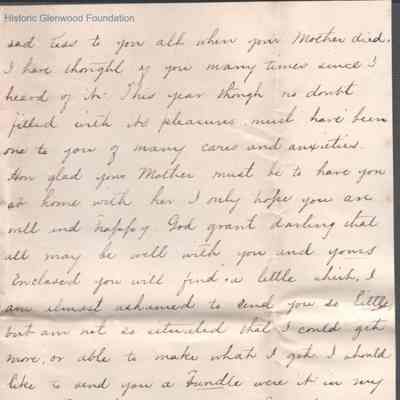 Historic Glenwood Foundation
sad loss to you all when your Mother died.
I have thought of you many times since I
heard of it. This year though no doubt
filled with its pleasures must have been
one to you of many cares and anxieties.
How glad your Mother must be to have you
at home with her. I only hope you are
well and happy. God grant darling that
all may be well with you and yours
Enclosed you will find a little shirt, I
am almost ashamed to send you so little
but am not so situated that I could get
more, or able to make what I got. I should
like to send you a bundle were it in my